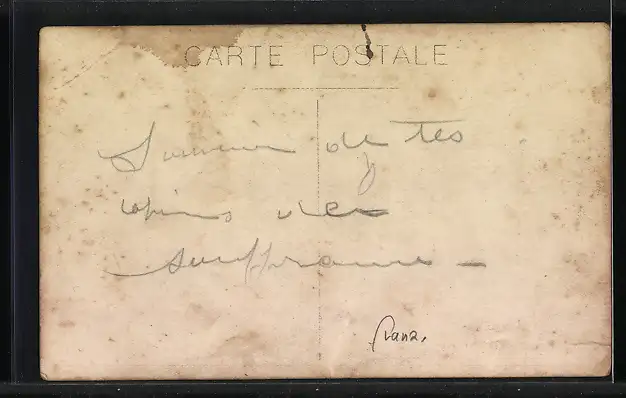 CARTE POSTALE
Souvenir de tes
copins de
souffrance –